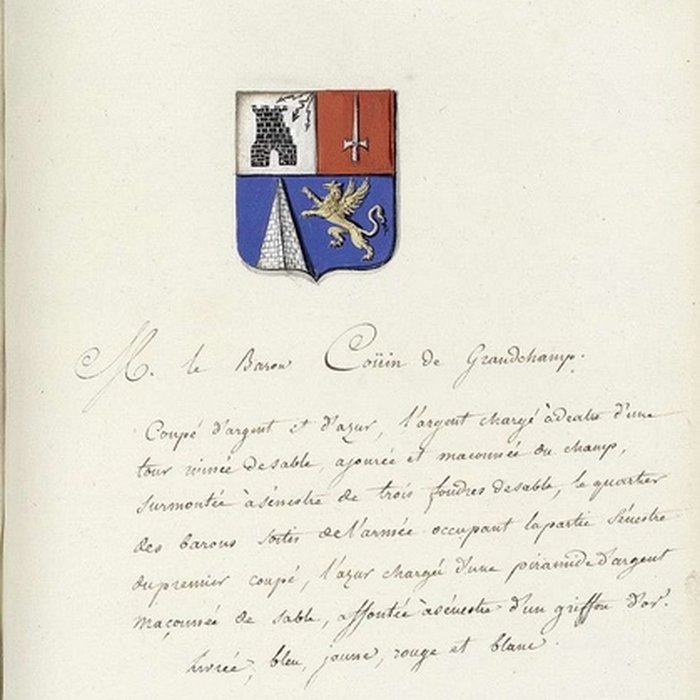 M. le Baron Coüin de Grandchamp.
Coupé d'argent et d'azur, l'argent chargé à dextre d'une
tour ruinée de sable, ajourée et maçonnée du champ,
surmontée à sénestre de trois foudres de sable, le quartier
des barons sortis de l'armée occupant la partie Sénestre
du premier coupé, l'azur chargé d'une piramide d'argent
maçonnée de sable, affrontée à sénestre d'un griffon d'or.
Livrée, bleu, jaune, rouge et blanc.